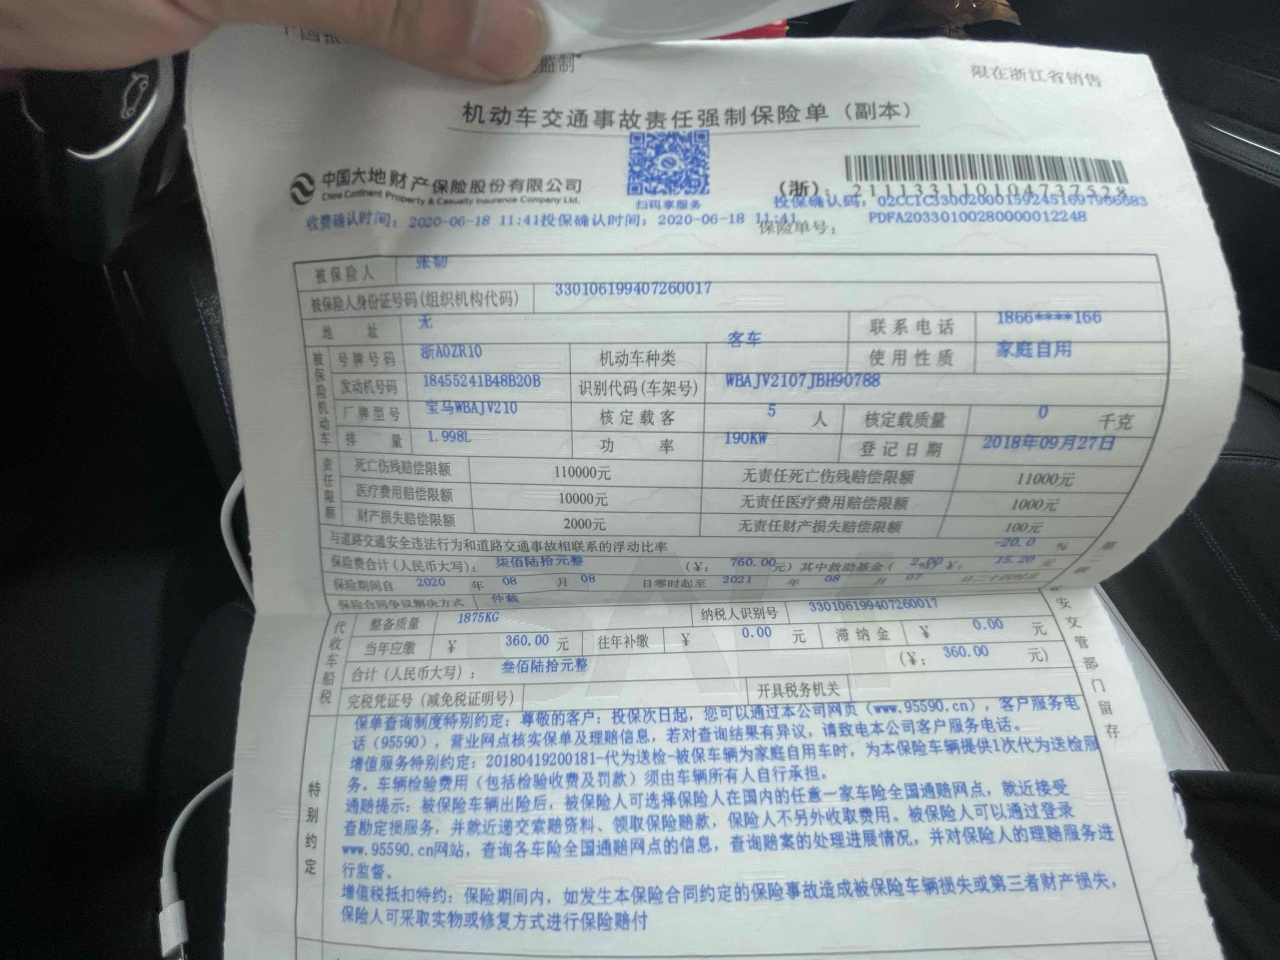 监制
限在浙江省销售
机动车交通事故责任强制保险单（副本）
中国大地财产保险股份有限公司
China Continent Property & Casualty Insurance Company Ltd.
扫码享服务
(浙): 2111331101047375​28
投保确认码: 02CCIC330020001592451697966683
收费确认时间: 2020-06-18 11:41投保确认时间: 2020-06-18 11:41
保险单号: PDFA20330100280000012248
被保险人 张韧
被保险人身份证号码(组织机构代码) 330106199407260017
地址 无 联系电话 1866****166
被保险机动车
号牌号码 浙A0ZR10 机动车种类 客车 使用性质 家庭自用
发动机号码 18455241B48B20B 识别代码(车架号) WBAJV2107JBH90788
厂牌型号 宝马WBAJV210 核定载客 5 人 核定载质量 0 千克
排量 1.998L 功率 190KW 登记日期 2018年09月27日
责任限额
死亡伤残赔偿限额 110000元 无责任死亡伤残赔偿限额 11000元
医疗费用赔偿限额 10000元 无责任医疗费用赔偿限额 1000元
财产损失赔偿限额 2000元 无责任财产损失赔偿限额 100元
与道路交通安全违法行为和道路交通事故相联系的浮动比率 -20.0 %
保险费合计(人民币大写): 柒佰陆拾元整 (¥: 760.00元) 其中救助基金( 2.00 %) ¥: 15.20 元
保险期间自 2020 年 08 月 08 日零时起至 2021 年 08 月 07 日二十四时止
保险合同争议解决方式 仲裁
代收车船税
整备质量 1875KG 纳税人识别号 330106199407260017
当年应缴 ¥ 360.00 元 往年补缴 ¥ 0.00 元 滞纳金 ¥ 0.00 元
合计(人民币大写): 叁佰陆拾元整 (¥: 360.00 元)
完税凭证号(减免税证明号) 开具税务机关
安交管部门留存
特别约定
保单查询制度特别约定: 尊敬的客户: 投保次日起, 您可以通过本公司网页(www.95590.cn), 客户服务电
话(95590), 营业网点核实保单及理赔信息, 若对查询结果有异议, 请致电本公司客户服务电话。
增值服务特别约定: 20180419200181-代为送检-被保车辆为家庭自用车时, 为本保险车辆提供1次代为送检服
务。车辆检验费用(包括检验收费及罚款)须由车辆所有人自行承担。
通赔提示: 被保险车辆出险后, 被保险人可选择保险人在国内的任意一家车险全国通赔网点, 就近接受
查勘定损服务, 并就近递交索赔资料、领取保险赔款, 保险人不另外收取费用。被保险人可以通过登录
www.95590.cn网站, 查询各车险全国通赔网点的信息, 查询赔案的处理进展情况, 并对保险人的理赔服务进
行监督。
增值税抵扣特约: 保险期间内, 如发生本保险合同约定的保险事故造成被保险车辆损失或第三者财产损失,
保险人可采取实物或修复方式进行保险赔付